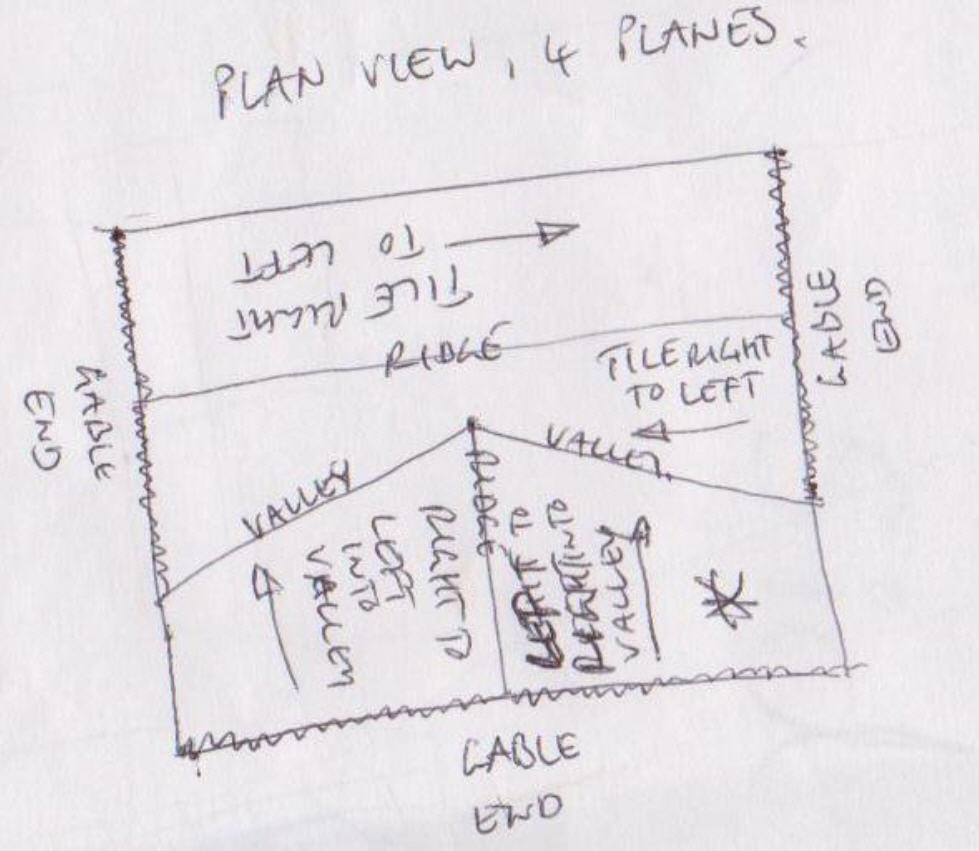 PLAN VIEW, 4 PLANES.
TILE RIGHT
TO LEFT
RIDGE
TILE RIGHT
TO LEFT
GABLE
END
GABLE
END
VALLEY
VALLEY
RIDGE
RIGHT TO
LEFT
INTO
VALLEY
TO
INTO
VALLEY
GABLE
END